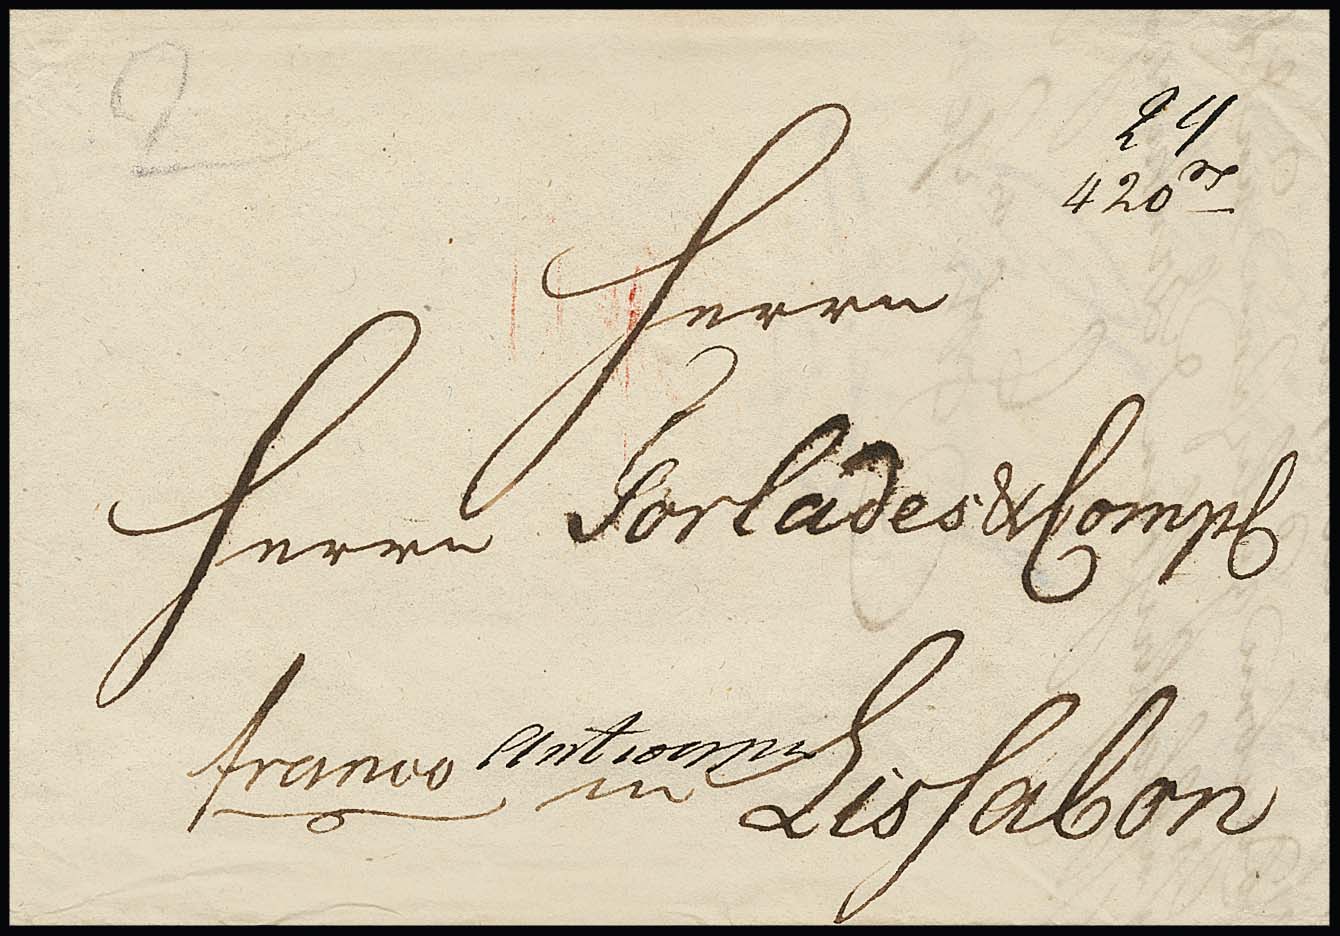 24
420 rs
Herrn
Herrn Torlades & Comp
franco Antwerpen
in Lissabon